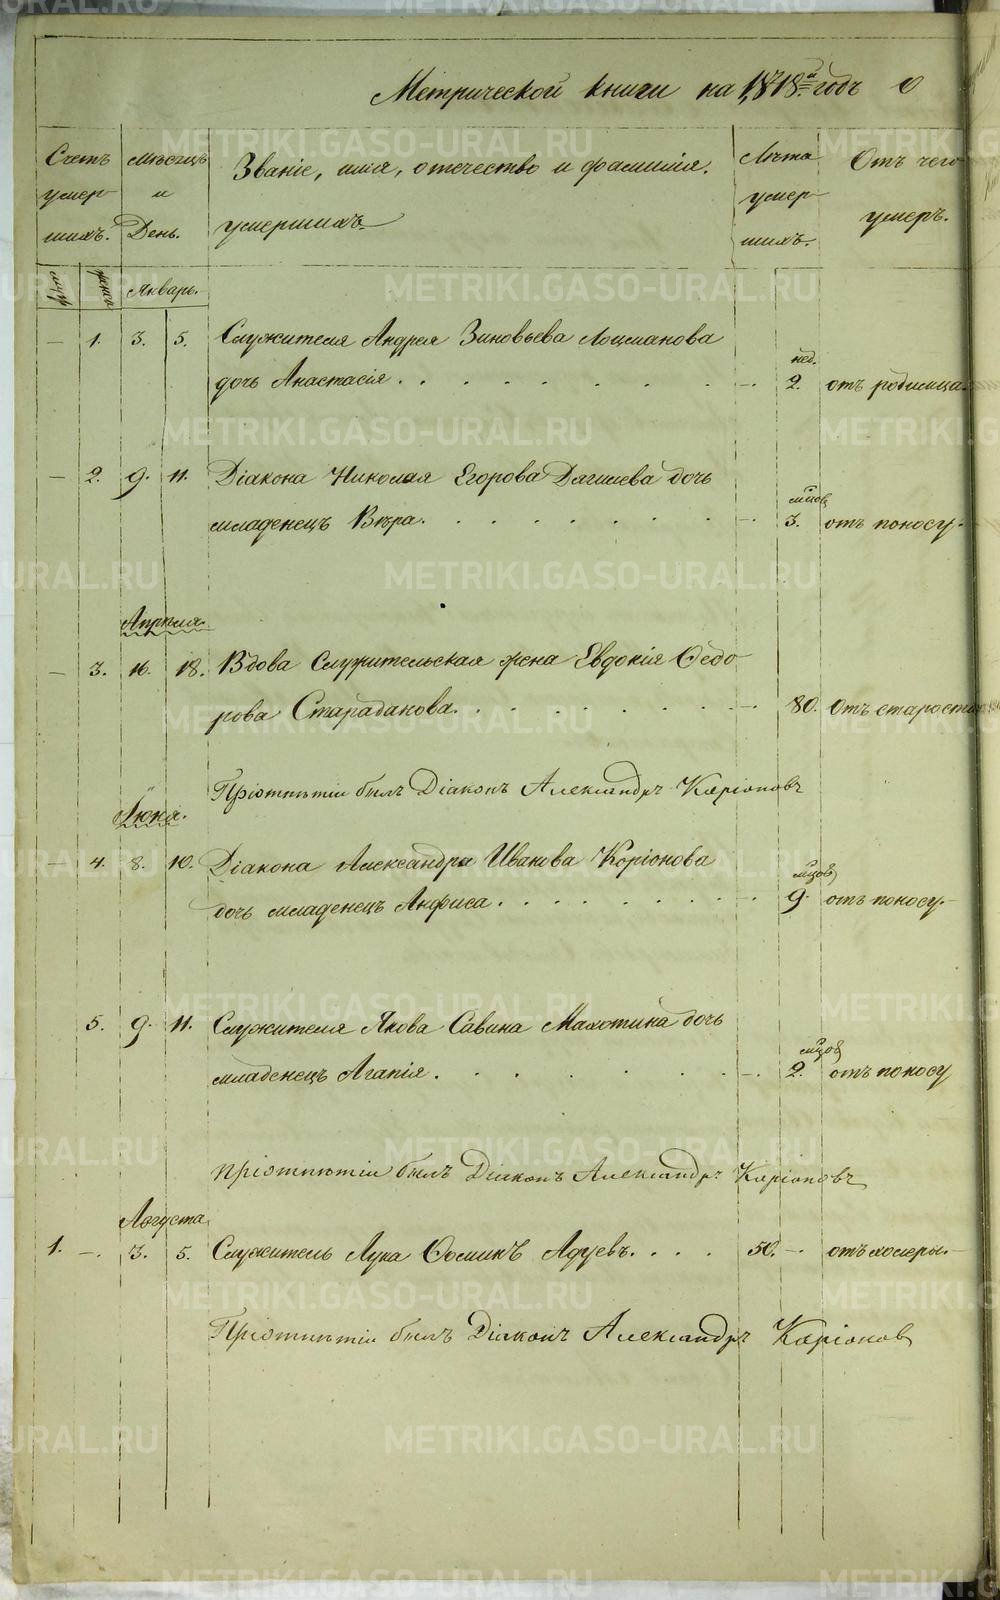 Метрической книги на 1848й годъ о
Счетъ умер- шихъ.
Мѣсяцъ и День.
Званіе, имя, отчество и фамилія. умершихъ.
Лѣта умер- шихъ.
Отъ чего умеръ.
муж. женс. Январь.
— 1. 3. 5. Служителя Андрея Зиновьева Лоцманова
дочь Анастасія. — нед. 2. отъ родимца.
— 2. 9. 11. Діакона Николая Егорова Дягилева дочь
младенецъ Вѣра. — мцов 3. отъ поносу.
Апрѣля.
— 3. 16. 18. Вдова Служительская жена Евдокія Ѳедо
рова Старабанова. — 80. Отъ старости
Пріотпѣтіи былъ Діаконъ Александръ Каріоновъ
Іюня.
— 4. 8. 10. Діакона Александра Иванова Каріонова
дочь младенецъ Анфиса. — мцов 9. отъ поносу.
5. 9. 11. Служителя Якова Савина Махотина дочь
младенецъ Агапія. — мцов 2. отъ поносу
Пріотпѣтіи былъ Діаконъ Александръ Каріоновъ
Августа
1. —. 3. 5. Служитель Лука Ѳоминъ Адуевъ. 50. — отъ холеры.
Пріотпѣтіи былъ Діаконъ Александръ Каріонов
METRIKI.GASO-URAL.RU